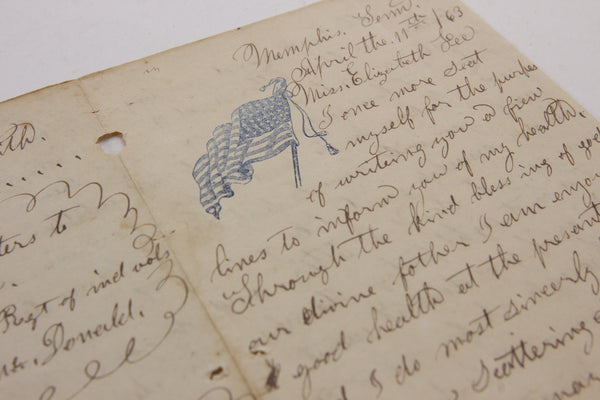 Memphis. Tenn.
April the. 11th /63
Miss. Elizabeth Lee
I once more seat
myself for the purpes
of writing you a few
lines to inform you of my health.
Through the kind bless ing of god
our divine father I am enjoy
good health at the present
I do most sincerly
Scattering
th.
ters to
Regt of ind vols
Donald.